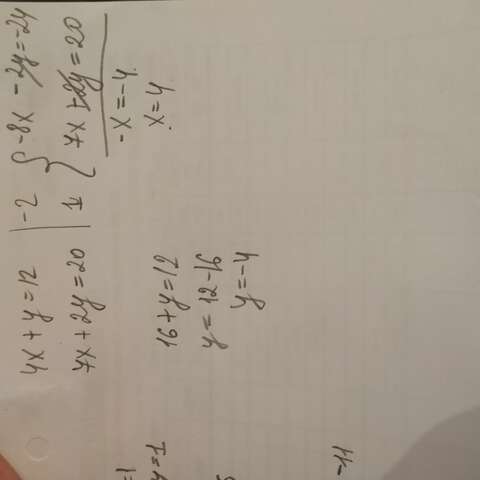 4x + y = 12 | -2 { -8x - 2y = -24
7x + 2y = 20 | 1 { 7x + 2y = 20
-x = -4
x = 4
16 + y = 12
y = 12 - 16
y = -4